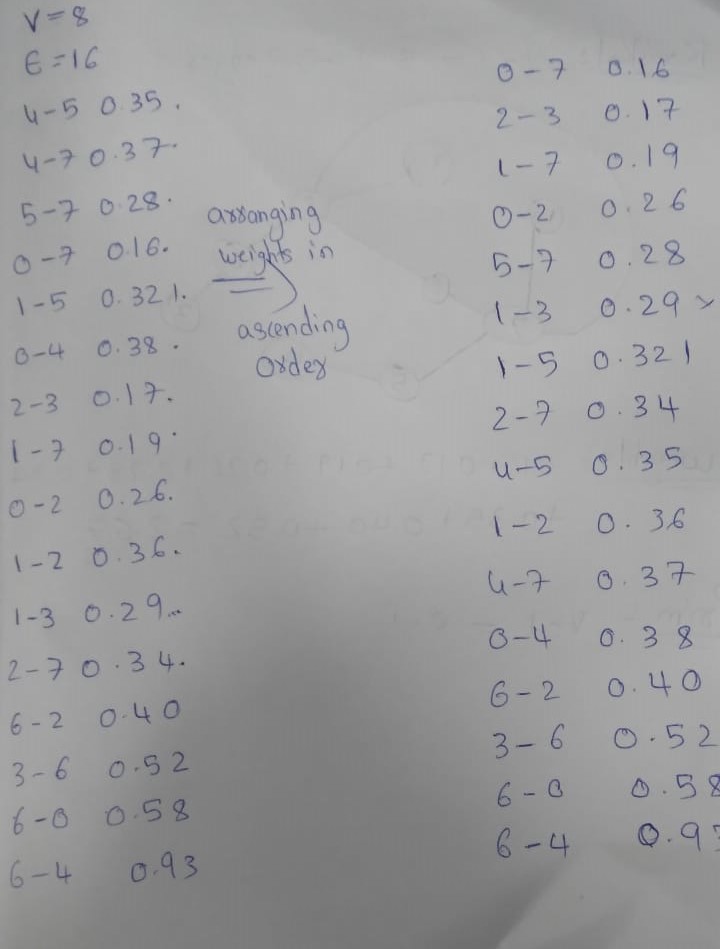 V=8
E=16
4-5 0.35.
4-7 0.37.
5-7 0.28.
0-7 0.16.
1-5 0.321.
0-4 0.38.
2-3 0.17.
1-7 0.19.
0-2 0.26.
1-2 0.36.
1-3 0.29..
2-7 0.34.
6-2 0.40
3-6 0.52
6-0 0.58
6-4 0.93
arranging
weights in
ascending
Order
0-7 0.16
2-3 0.17
1-7 0.19
0-2 0.26
5-7 0.28
1-3 0.29 x
1-5 0.321
2-7 0.34
4-5 0.35
1-2 0.36
4-7 0.37
0-4 0.38
6-2 0.40
3-6 0.52
6-0 0.58
6-4 0.93